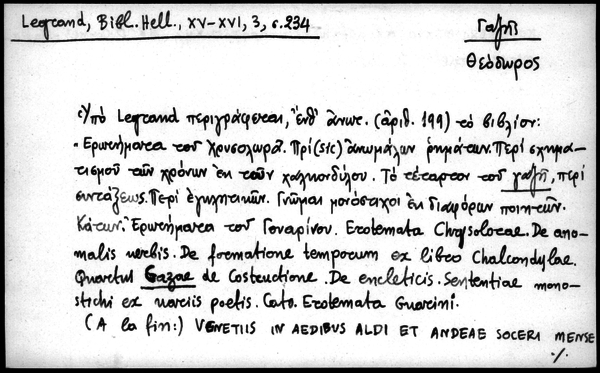 Legrand, Bibl. Hell., XV-XVI, 3, σ. 234
Γαζῆς
Θεόδωρος
Ὑπὸ Legrand περιγράφεται, ἔνθ' ἄνωτ. (ἀριθ. 199) τὸ βιβλίον:
"Ερωτήματα τοῦ Χρυσολωρᾶ. Πρί (sic) ἀνωμάλων ρημάτων. Περὶ σχημα-
τισμοῦ τῶν χρόνων ἐκ τῶν χαλκονδύλου. Τὸ τέταρτον τοῦ γαζῆ, περὶ
συντάξεως. Περὶ ἐγκλητικῶν. Γνῶμαι μονόστιχοι ἐκ διαφόρων ποιητῶν.
Κάτων. Ἐρωτήματα τοῦ Γουαρίνου. Erotemata Chrysolorae. De ano-
malis verbis. De formatione temporum ex libro Chalcondylae.
Quartus Gazae de Constructione. De encleticis. Sententiae mono-
stichi ex variis poetis. Cato. Erotemata Guarini.
(A la fin:) VENETIIS IN AEDIBUS ALDI ET ANDEAE SOCERI MENSE
./.